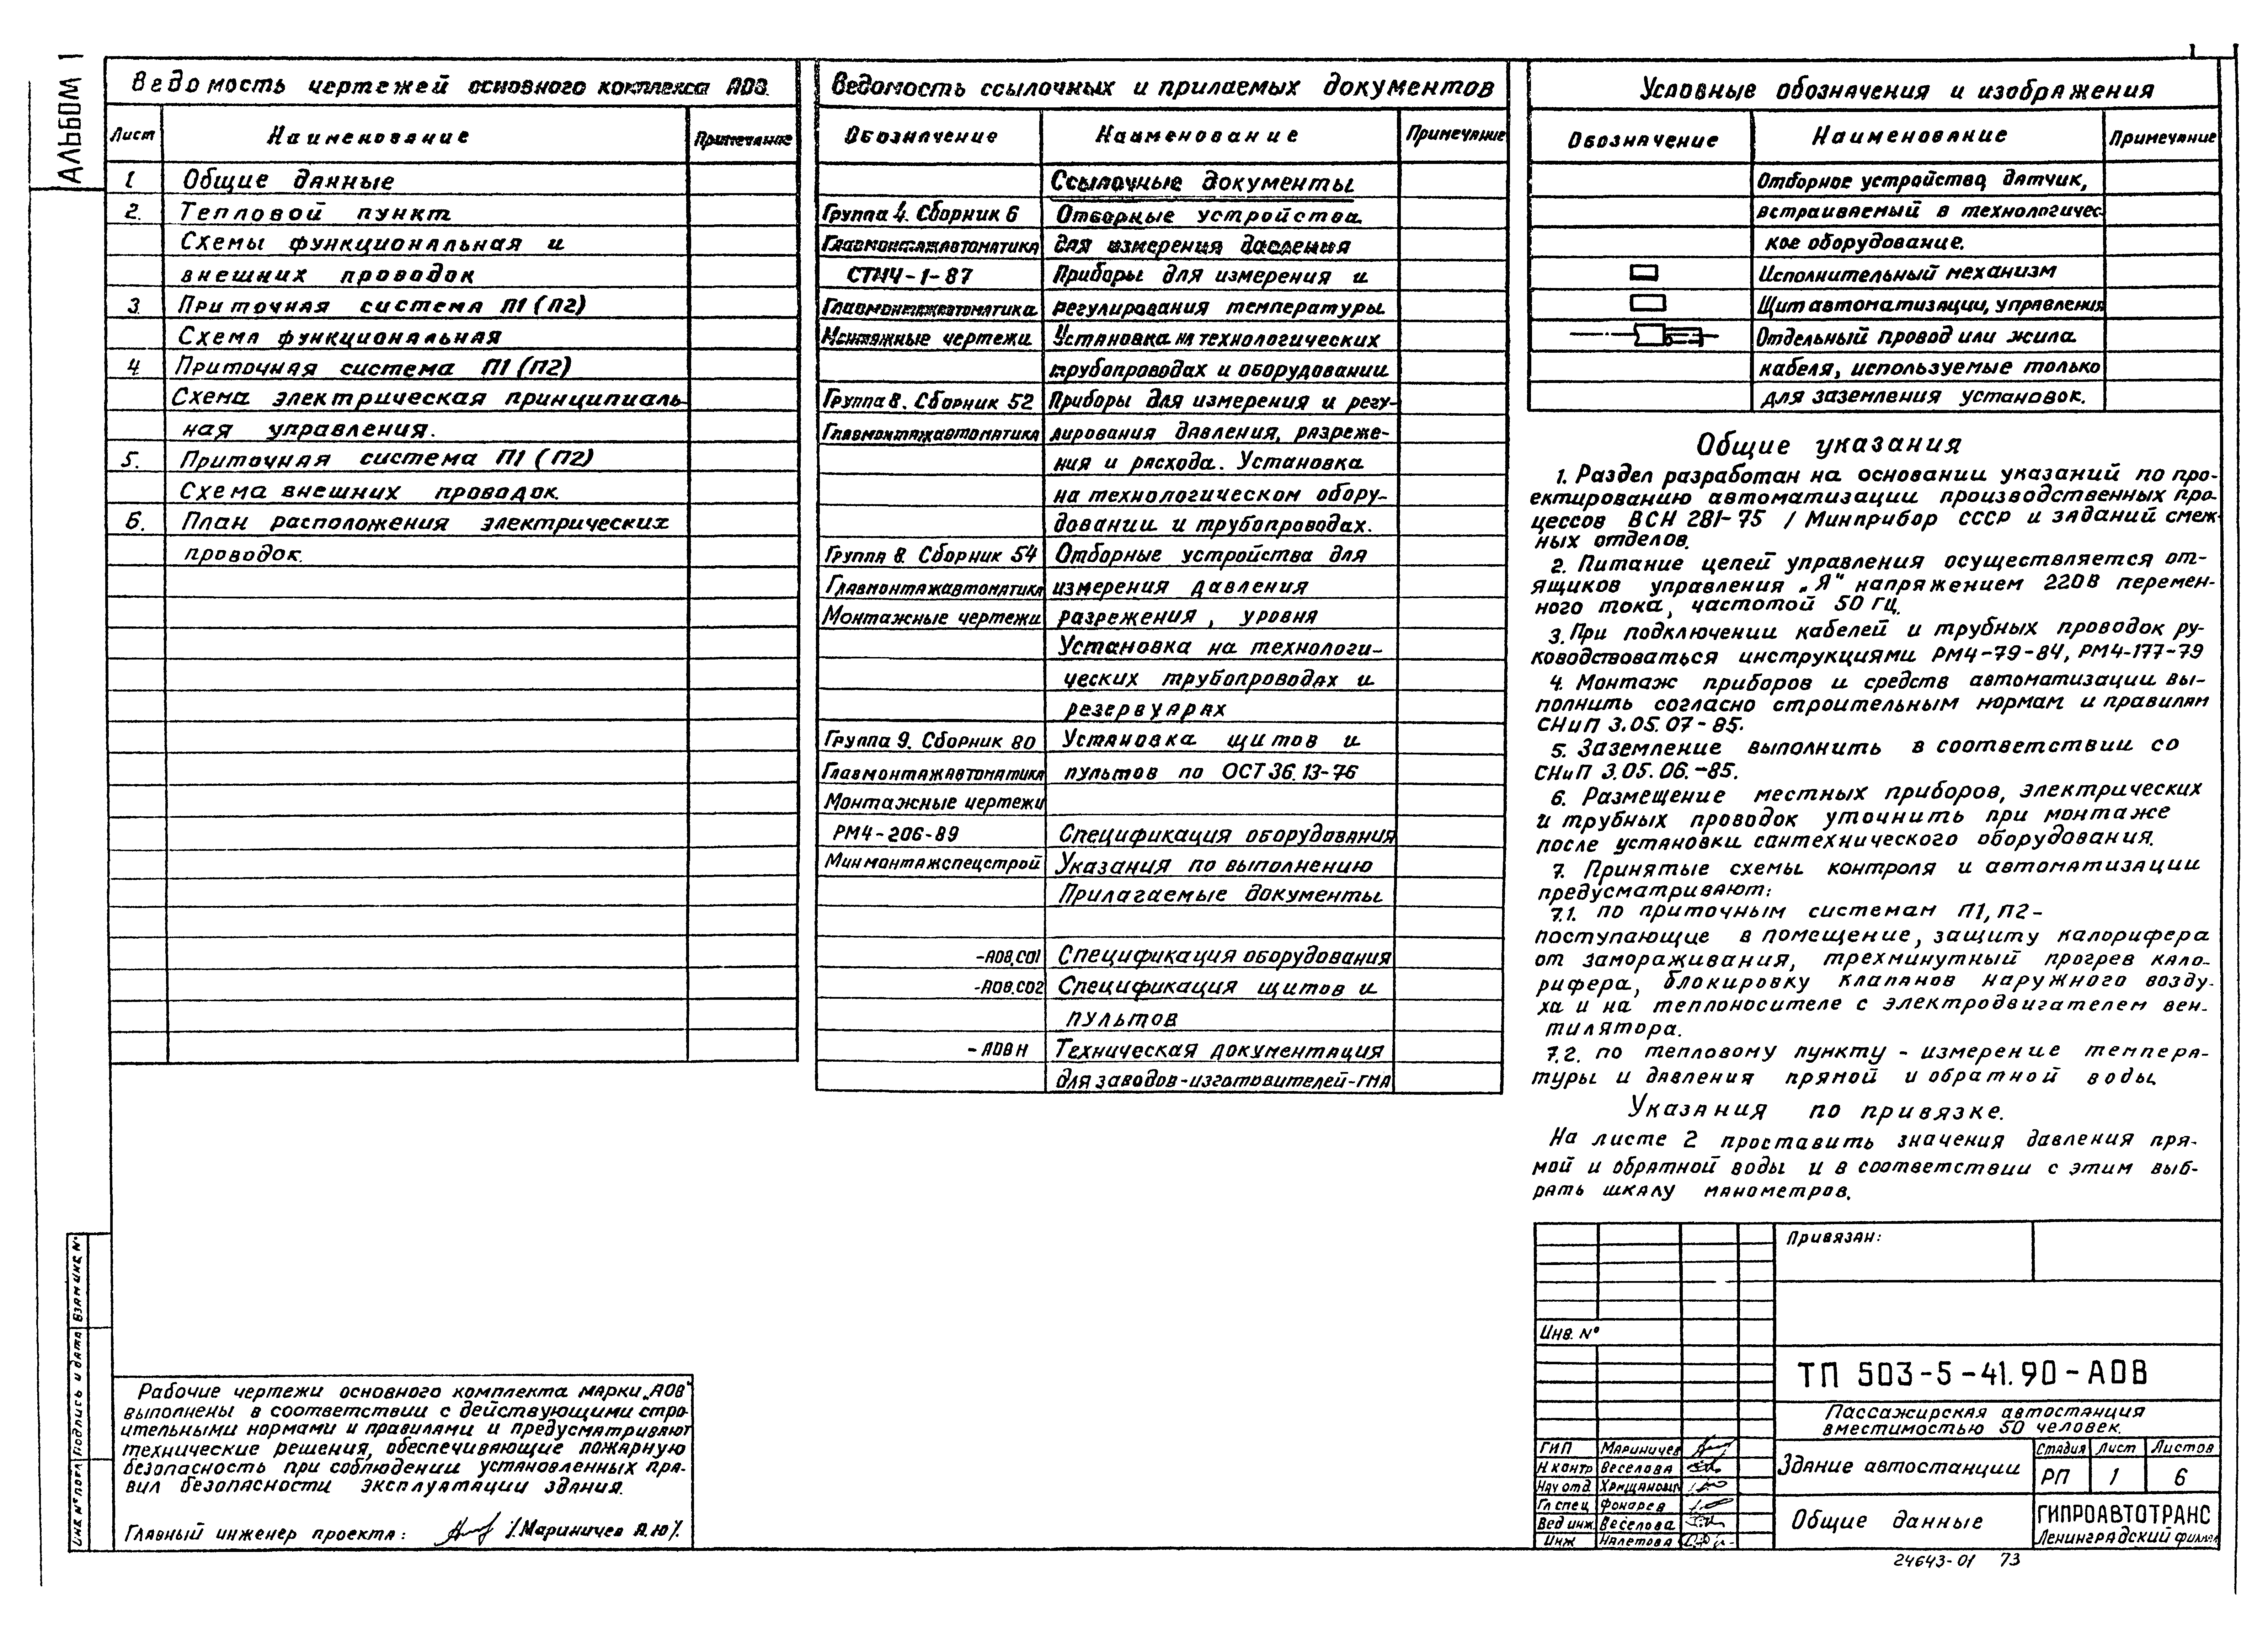 АЛЬБОМ 1
Ведомость чертежей основного комплекса АОВ.
Лист Наименование Примечание
1 Общие данные
2. Тепловой пункт
Схемы функциональная и
внешних проводок
3. Приточная система П1 (П2)
Схема функциональная
4 Приточная система П1 (П2)
Схема электрическая принципиаль-
ная управления.
5. Приточная система П1 (П2)
Схема внешних проводок.
6. План расположения электрических
проводок.
Ведомость ссылочных и прилаемых документов
Обозначение Наименование Примечание
Ссылочные документы
Группа 4. Сборник 6 Отборные устройства
Главмонтажавтоматика для измерения давления
СТМ4-1-87 Приборы для измерения и
Главмонтажавтоматика регулирования температуры.
Монтажные чертежи Установка на технологических
трубопроводах и оборудовании.
Группа 8. Сборник 52 Приборы для измерения и регу-
Главмонтажавтоматика лирования давления, разреже-
ния и расхода. Установка
на технологическом обору-
довании и трубопроводах.
Группа 8. Сборник 54 Отборные устройства для
Главмонтажавтоматика измерения давления
Монтажные чертежи разрежения, уровня
Установка на технологи-
ческих трубопроводах и
резервуарах
Группа 9. Сборник 80 Установка щитов и
Главмонтажавтоматика пультов по ОСТ 36.13-76
Монтажные чертежи
РМ4-206-89 Спецификация оборудования
Минмонтажспецстрой Указания по выполнению
Прилагаемые документы
-АОВ.СО1 Спецификация оборудования
-АОВ.СО2 Спецификация щитов и
пультов
- АОВ Н Техническая документация
для заводов-изготовителей-ГМА
Условные обозначения и изображения
Обозначение Наименование Примечание
Отборное устройство, датчик,
встраиваемый в технологичес-
кое оборудование.
Исполнительный механизм
Щит автоматизации, управления
Отдельный провод или жила
кабеля, используемые только
для заземления установок.
Общие указания
1. Раздел разработан на основании указаний по про-
ектированию автоматизации производственных про-
цессов ВСН 281-75 / Минприбор СССР и заданий смеж-
ных отделов.
2. Питание цепей управления осуществляется от-
ящиков управления „Я" напряжением 220В перемен-
ного тока, частотой 50 гц.
3. При подключении кабелей и трубных проводок ру-
ководствоваться инструкциями РМ4-79-84, РМ4-177-79
4. Монтаж приборов и средств автоматизации вы-
полнить согласно строительным нормам и правилам
СНиП 3.05.07-85.
5. Заземление выполнить в соответствии со
СНиП 3.05.06.-85.
6. Размещение местных приборов, электрических
и трубных проводок уточнить при монтаже
после установки сантехнического оборудования.
7. Принятые схемы контроля и автоматизации
предусматривают:
7.1. по приточным системам П1, П2-
поступающие в помещение, защиту калорифера
от замораживания, трехминутный прогрев кало-
рифера, блокировку клапанов наружного возду-
ха и на теплоносителе с электродвигателем вен-
тилятора.
7.2. по тепловому пункту - измерение темпера-
туры и давления прямой и обратной воды.
Указания по привязке.
На листе 2 проставить значения давления пря-
мой и обратной воды и в соответствии с этим выб-
рать шкалу манометров.
Рабочие чертежи основного комплекта марки „АОВ"
выполнены в соответствии с действующими стро-
ительными нормами и правилами и предусматривают
технические решения, обеспечивающие пожарную
безопасность при соблюдении установленных пра-
вил безопасности эксплуатации здания.
Главный инженер проекта: /.Мариничев А.Ю/.
Инв. № подл Подпись и дата Взам инв. №
Привязан:
Инв. №
ТП 503-5-41.90-АОВ
Пассажирская автостанция
вместимостью 50 человек.
ГИП Мариничев
Н контр Веселова
Нач отд Хрищанович
Гл спец Фонарев
Вед инж. Веселова
Инж Налетова
Здание автостанции
Стадия Лист Листов
РП 1 6
Общие данные
ГИПРОАВТОТРАНС
Ленинградский филиал
24643-01 73